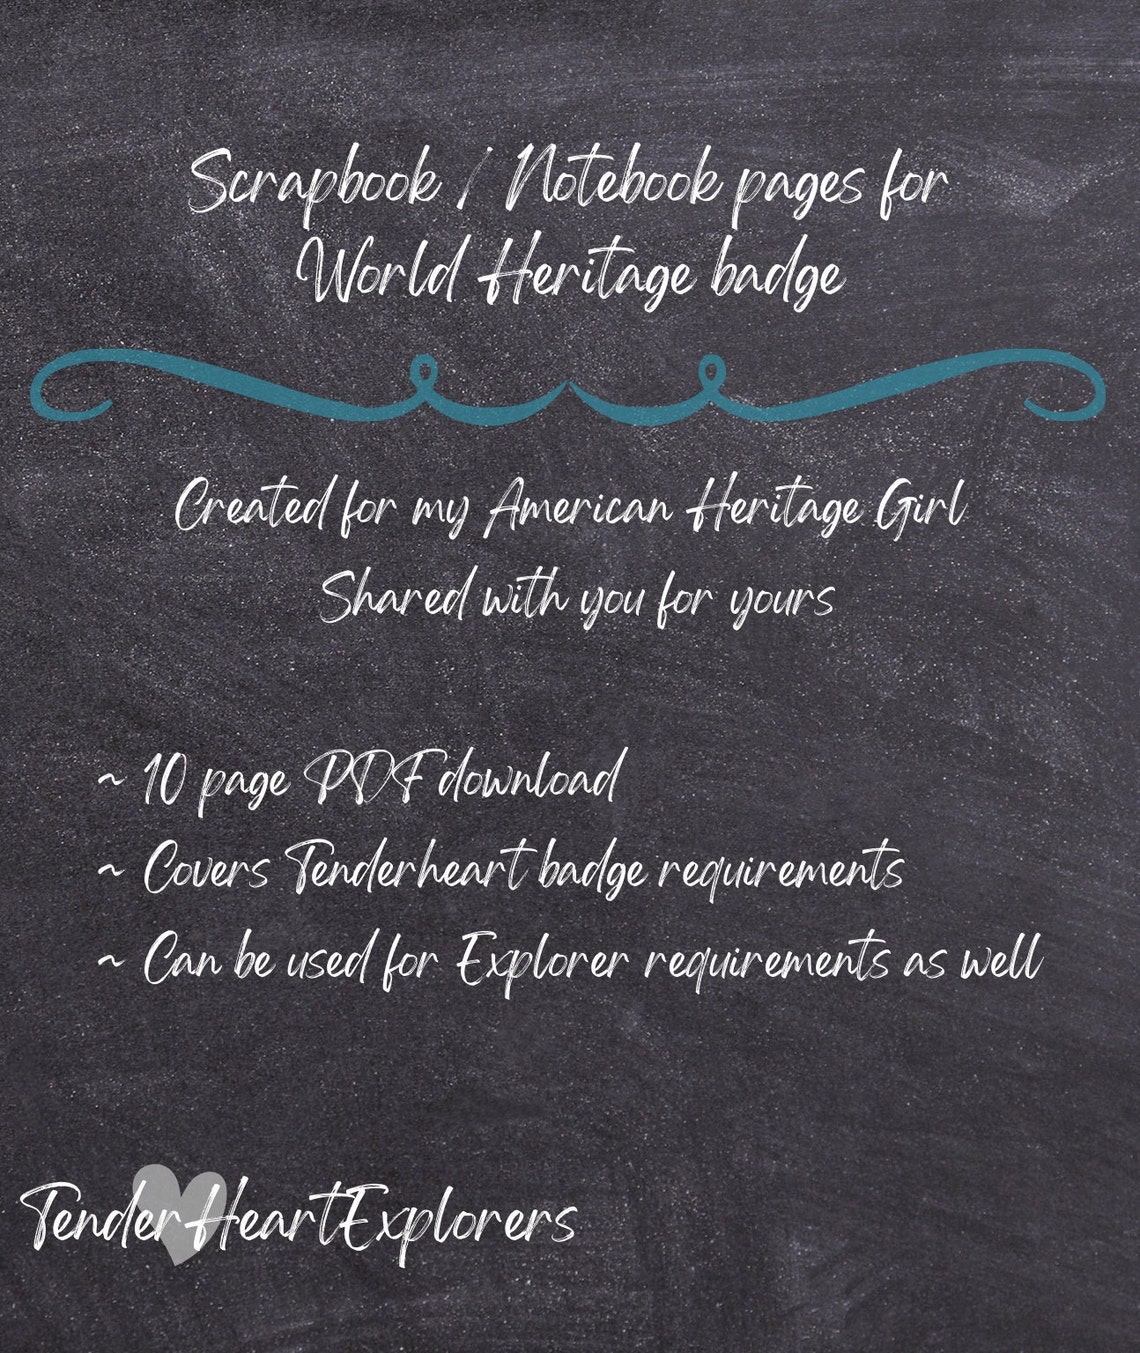 Scrapbook / Notebook pages for
World Heritage badge
Created for my American Heritage Girl
Shared with you for yours
~ 10 page PDF download
~ Covers Tenderheart badge requirements
~ Can be used for Explorer requirements as well
TenderHeartExplorers